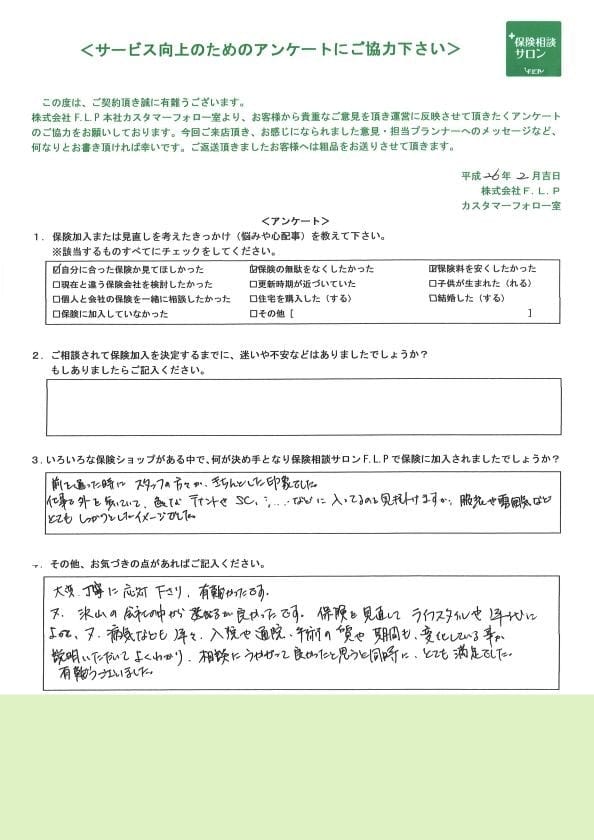 ＜サービス向上のためのアンケートにご協力下さい＞
保険相談
サロン
F.L.P
この度は、ご契約頂き誠に有難うございます。
株式会社F.L.P本社カスタマーフォロー室より、お客様から貴重なご意見を頂き運営に反映させて頂きたくアンケート
のご協力をお願いしております。今回ご来店頂き、お感じになられました意見・担当プランナーへのメッセージなど、
何なりとお書き頂ければ幸いです。ご返送頂きましたお客様へは粗品をお送りさせて頂きます。
平成26年 2月吉日
株式会社F.L.P
カスタマーフォロー室
＜アンケート＞
１．保険加入または見直しを考えたきっかけ（悩みや心配事）を教えて下さい。
※該当するものすべてにチェックをしてください。
☑自分に合った保険か見てほしかった ☑保険の無駄をなくしたかった ☑保険料を安くしたかった
□現在と違う保険会社を検討したかった □更新時期が近づいていた □子供が生まれた（れる）
□個人と会社の保険を一緒に相談したかった □住宅を購入した（する） □結婚した（する）
□保険に加入していなかった □その他［ ］
２．ご相談されて保険加入を決定するまでに、迷いや不安などはありましたでしょうか？
もしありましたらご記入ください。
３.いろいろな保険ショップがある中で、何が決め手となり保険相談サロンF.L.Pで保険に加入されましたでしょうか？
前を通った時に スタッフの方々が、きちんとした印象でした。
仕事で外を歩いていて、色々な テナントや SC、……などに入ってるのを見掛けますが、服装や雰囲気など
とてもしっかりとしたイメージでした。
．その他、お気づきの点があればご記入ください。
大変、丁寧に応対下さり、有難かったです。
又、沢山の会社の中から選べるが良かったです。保険を見直して ライフスタイルや 年代に
よって、又、病気なども年々、入院や通院、手術の質や 期間も、変化している事が
説明いただいて よくわかり、相談にうかがって 良かったと思うと同時に、とても 満足でした。
有難うございました。